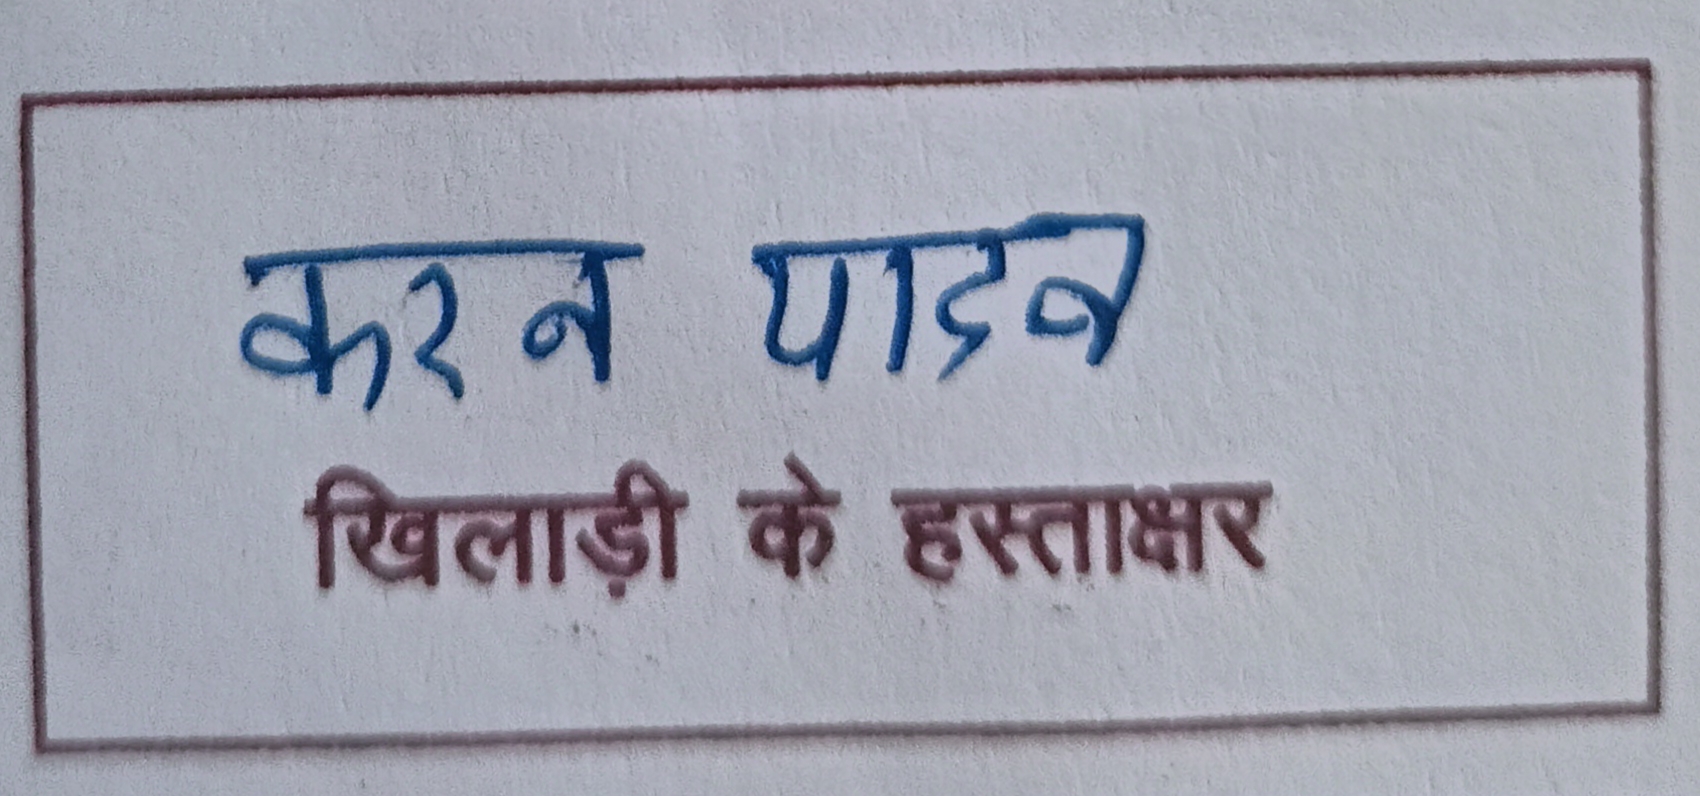 करन यादव
खिलाड़ी के हस्ताक्षर